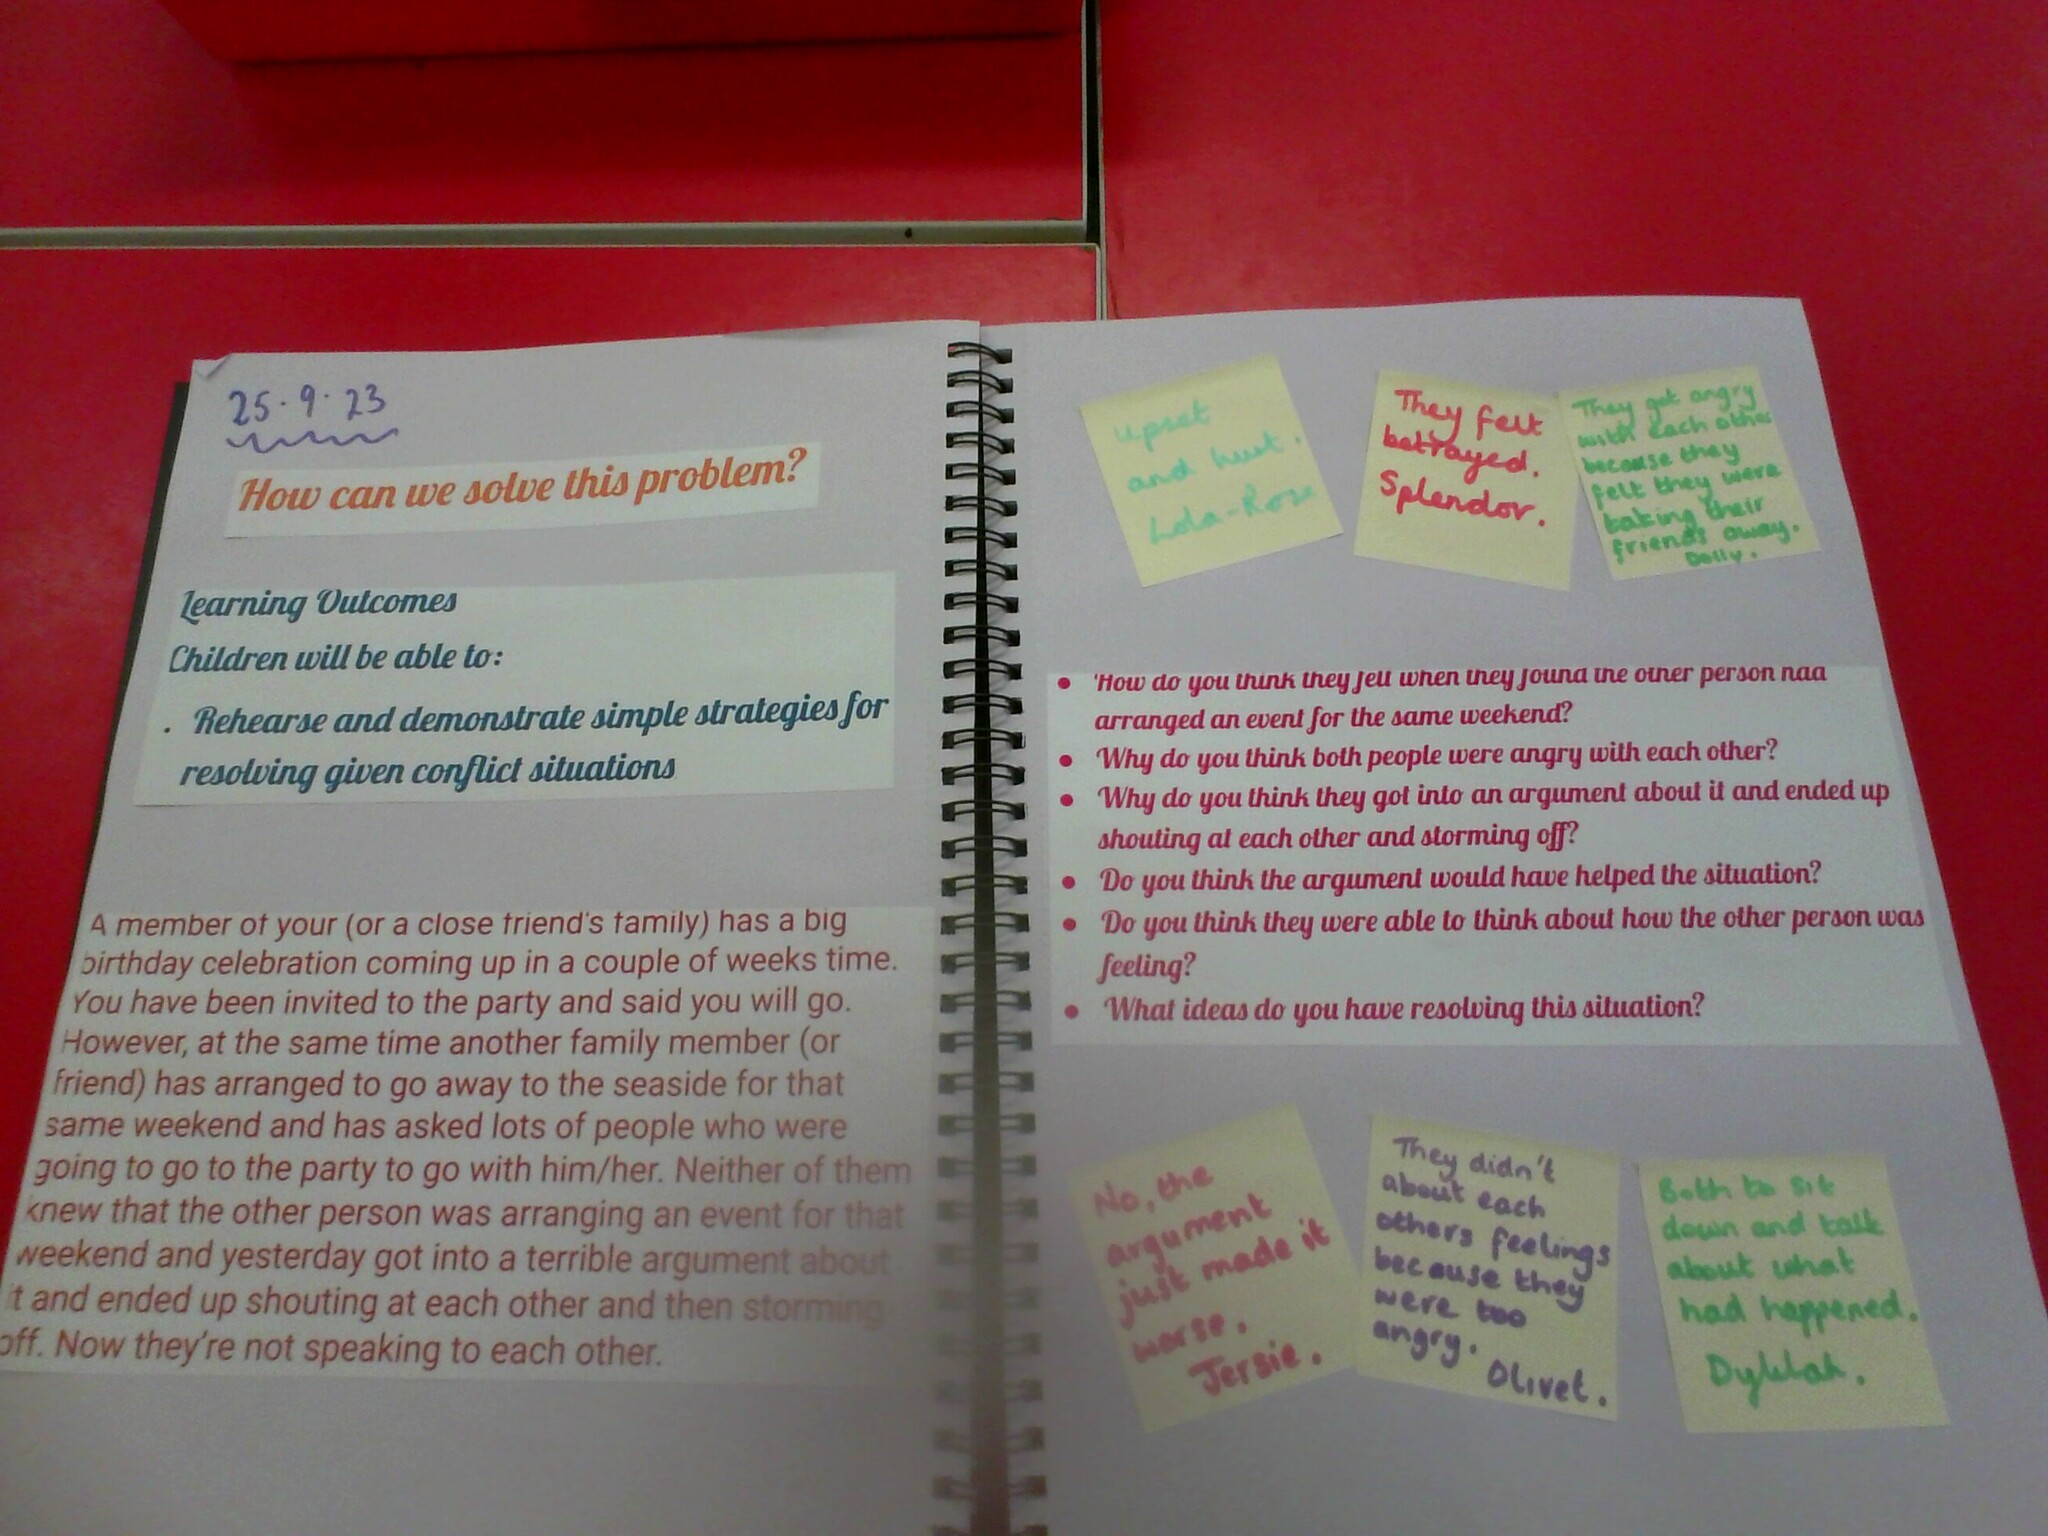 25.9.23
How can we solve this problem?
Learning Outcomes
Children will be able to:
. Rehearse and demonstrate simple strategies for
resolving given conflict situations
A member of your (or a close friend's family) has a big
birthday celebration coming up in a couple of weeks time.
You have been invited to the party and said you will go.
However, at the same time another family member (or
friend) has arranged to go away to the seaside for that
same weekend and has asked lots of people who were
going to go to the party to go with him/her. Neither of them
knew that the other person was arranging an event for that
weekend and yesterday got into a terrible argument about
it and ended up shouting at each other and then storming
off. Now they're not speaking to each other.
upset
and hurt.
Lola-Rose
They felt
betrayed.
Splendor.
They got angry
with each other
because they
felt they were
taking their
friends away.
Dolly.
• How do you think they felt when they found the other person had
arranged an event for the same weekend?
• Why do you think both people were angry with each other?
• Why do you think they got into an argument about it and ended up
shouting at each other and storming off?
• Do you think the argument would have helped the situation?
• Do you think they were able to think about how the other person was
feeling?
• What ideas do you have resolving this situation?
No, the
argument
just made it
worse.
Jersie.
They didn't
about each
others feelings
because they
were too
angry.
Olivet.
Both to sit
down and talk
about what
had happened.
Dylilah.